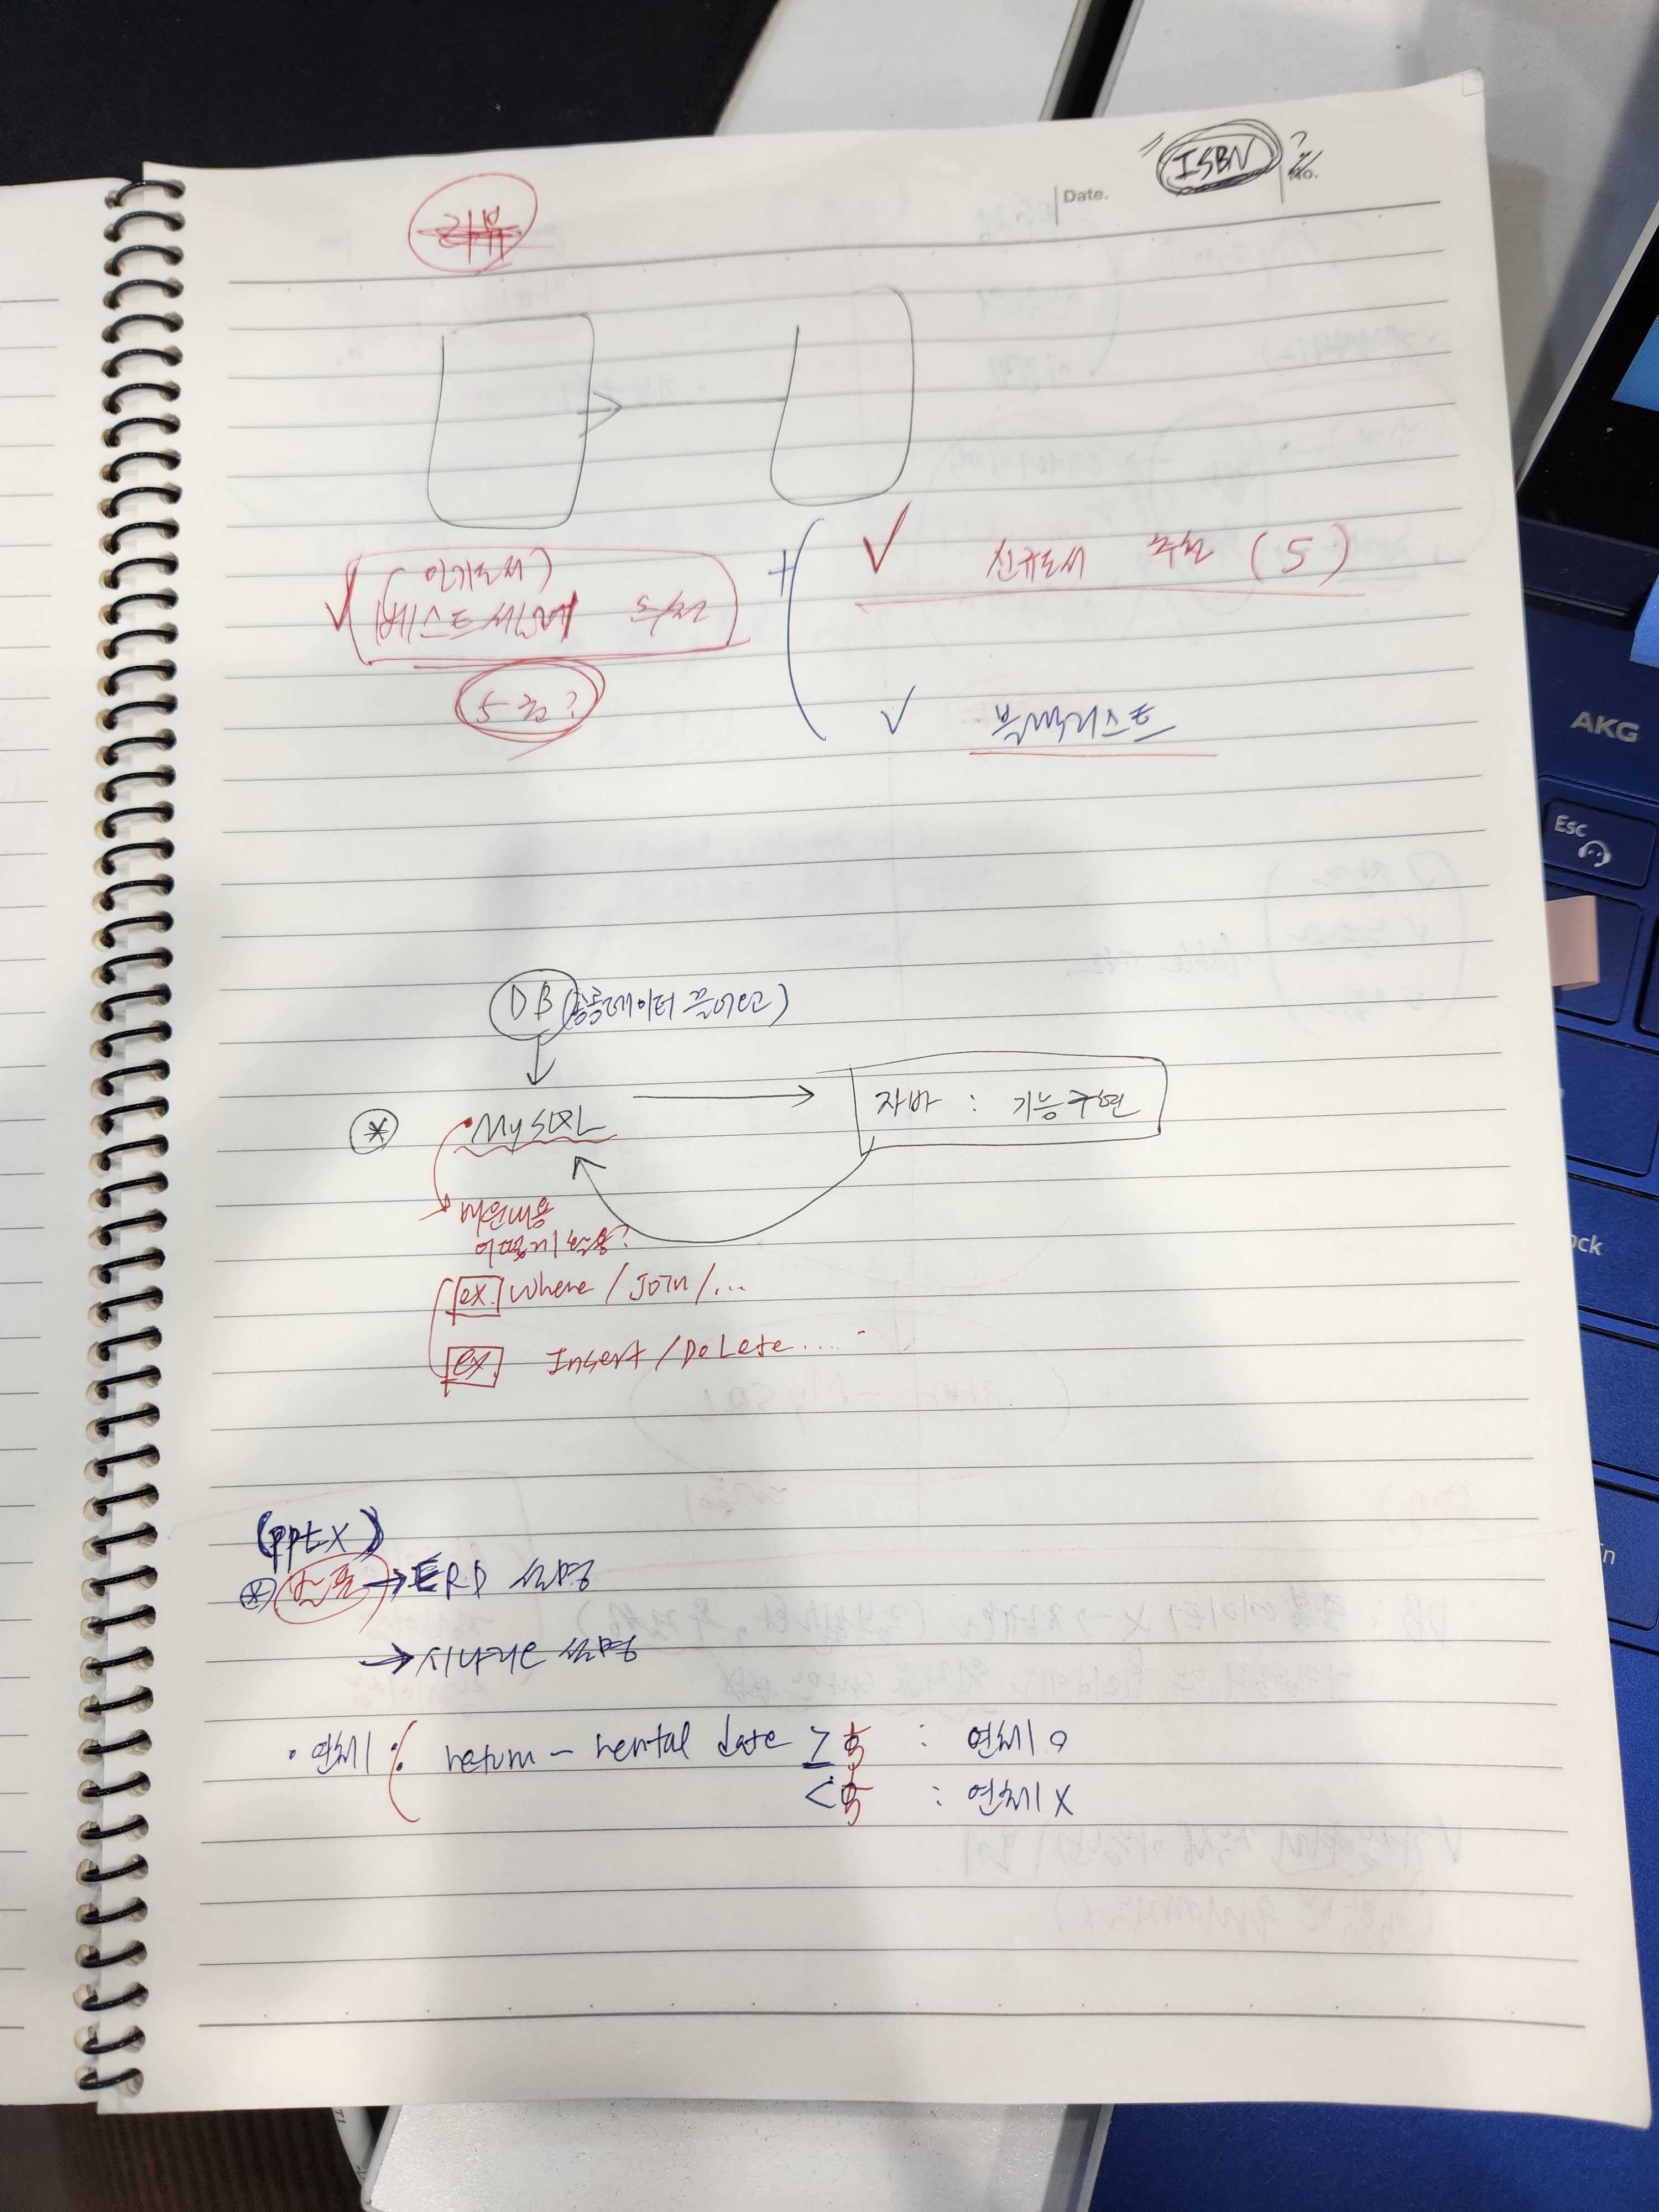 "ISBN"?
Date.
No.
리뷰
(인기도서)
베스트셀러 추천
5권?
+
✓ 신규도서 추천 (5)
✓ 블랙리스트
DB (공공데이터 끌어오고)
MySQL
자바 : 기능구현
배운내용
어떻게 활용?
ex. Where / Join / ...
ex. Insert / Delete ....
(ppt X)
발표 → ERD 설명
→ 시나리오 설명
· 연체 : return - rental date ≥ 5 : 연체 O
< 5 : 연체 X
AKG
Esc